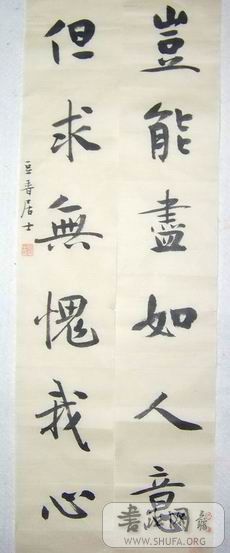 豈能盡如人意
但求無愧我心
豆青居士
書法網
WWW.SHUFA.ORG